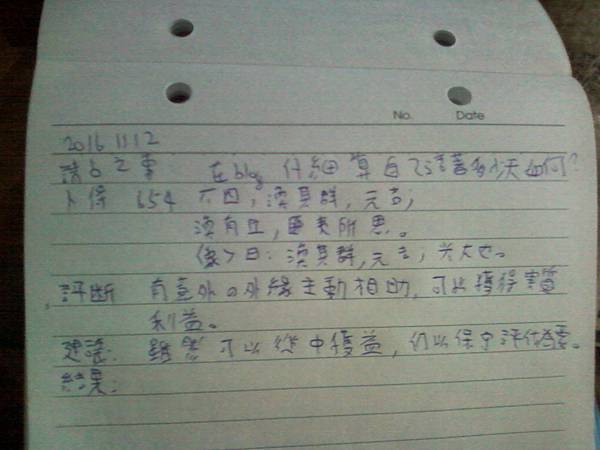 No. Date
2016 11 12
請 之事 在blog 仔細算自己活著多少天如何?
卜得 654 六四,渙其群,元吉;
渙有丘,匪夷所思。
象曰:渙其群,元吉;光大也。
評斷 有意外的外緣主動相助,可以獲得實質
利益。
建議: 雖然可以從中獲益,仍以保守評估為要。
結果: